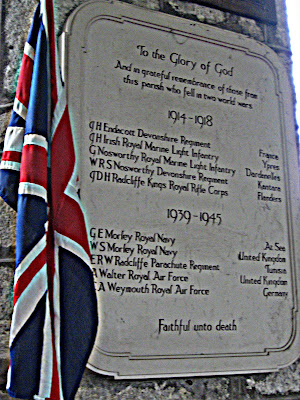 To the Glory of God
And in grateful remembrance of those from
this parish who fell in two world wars
1914-1918
J H Endacott Devonshire Regiment France
J H Irish Royal Marine Light Infantry Ypres
G Nosworthy Royal Marine Light Infantry Dardenelles
W R S Nosworthy Devonshire Regiment Kantara
J D H Radcliffe Kings Royal Rifle Corps Flanders
1939-1945
G E Morley Royal Navy At Sea
W S Morley Royal Navy United Kingdom
E R W Radcliffe Parachute Regiment Tunisia
A Walter Royal Air Force United Kingdom
C A Weymouth Royal Air Force Germany
Faithful unto death